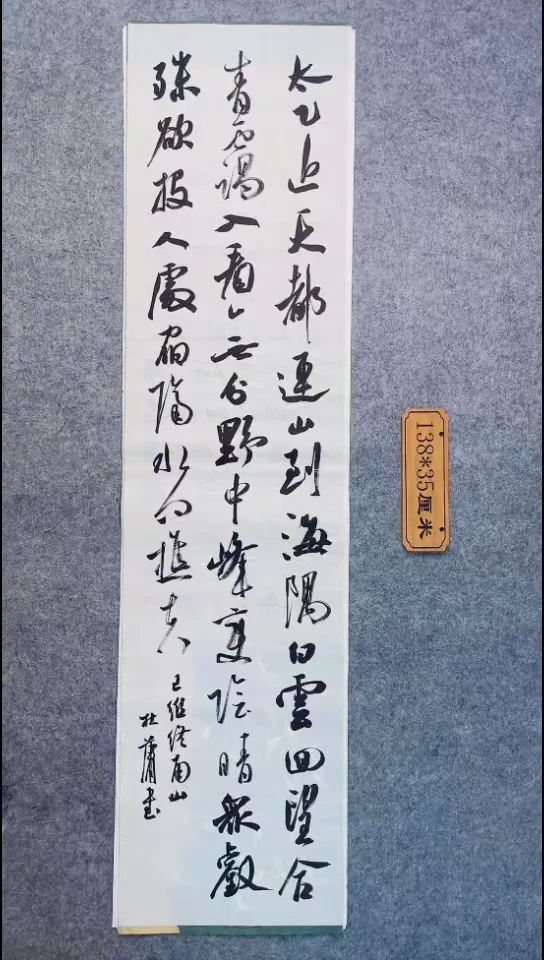 太乙近天都連山到海隅白雲回望合
青靄入看无分野中峰變陰晴衆壑
殊欲投人處宿隔水问樵夫
王維終南山
杜书
138*35厘米